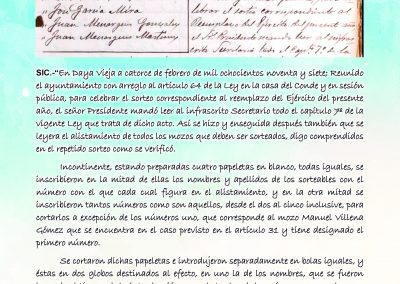 José García Mira
Juan Menarguez Gonzalez
Juan Menarguez Martinez
librar el sorteo correspondiente al
Reemplazo del Ejército del presente año
el Sr. Presidente mandó leer al infras-
crito Secretario todo el Capº 7º de la
SIC.-"En Daya Vieja a catorce de febrero de mil ochocientos noventa y siete; Reunido
el ayuntamiento con arreglo al artículo 64 de la Ley en la casa del Conde y en sesión
pública, para celebrar el sorteo correspondiente al reemplazo del Ejército del presente
año, el señor Presidente mandó leer al infrascrito Secretario todo el capítulo 7º de la
vigente Ley que trata de dicho acto. Así se hizo y enseguida después también que se
leyera el alistamiento de todos los mozos que deben ser sorteados, digo comprendidos
en el repetido sorteo como se verificó.
Incontinente, estando preparadas cuatro papeletas en blanco, todas iguales, se
inscribieron en la mitad de ellas los nombres y apellidos de los sorteables con el
número con el que cada cual figura en el alistamiento, y en la otra mitad se
inscribieron tantos números como son aquellos, desde el dos al cinco inclusive, para
cortarlos a excepción de los números uno, que corresponde al mozo Manuel Villena
Gómez que se encuentra en el caso previsto en el artículo 31 y tiene designado el
primero número.
Se cortaron dichas papeletas e introdujeron separadamente en bolas iguales, y
éstas en dos globos destinados al efecto, en uno la de los nombres, que se fueron